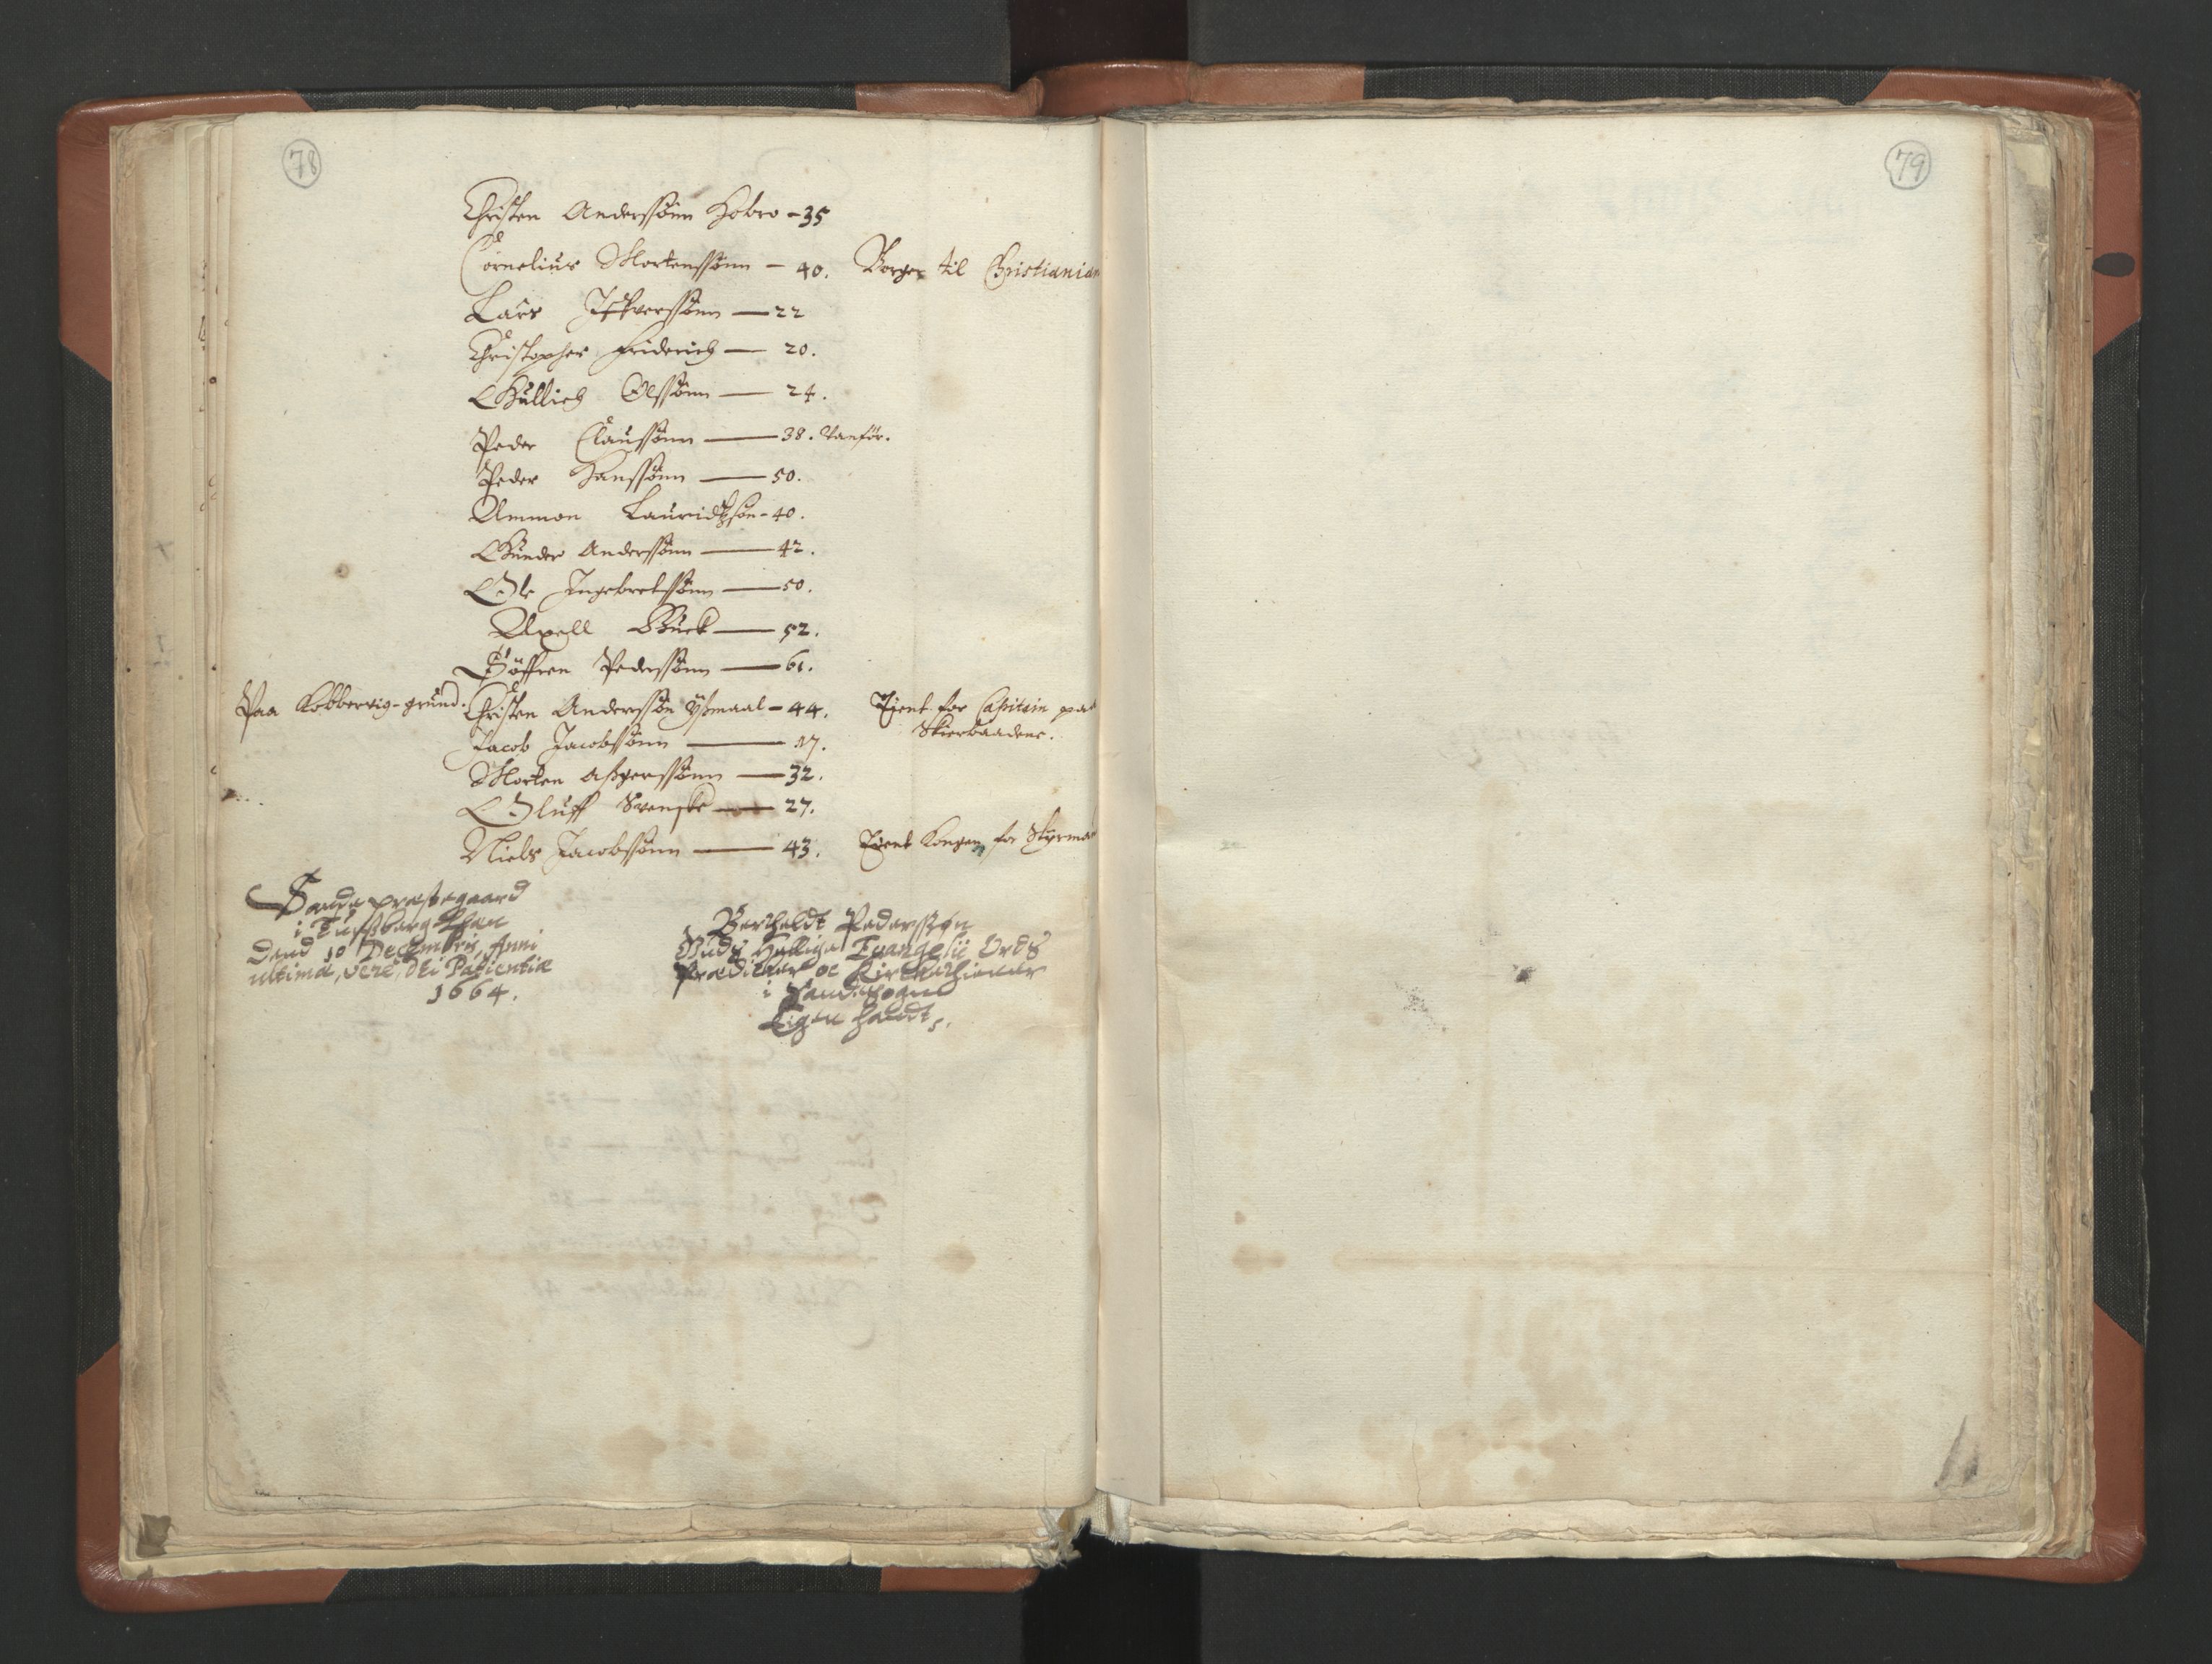 78
79
Christen Anderssönn Hobro - 35
Cornelius Mortenssönn - 40. Borger til Christiania
Lars Ifwerssönn — 22
Christopher Friderich — 20.
Gullich Olssönn — 24.
Peder Claussönn — 38. Vanför.
Peder Hanssönn — 50.
Ammon Lauridtzsön - 40.
Gunder Anderssönn — 42.
Ole Ingebretssönn — 50.
Axell Buck — 52.
Söffren Pederssönn — 61.
Paa Kobbervig-grund. Christen Anderssön - 44. Tjent for Capitein paa
Skierbaadene.
Jacob Jacobssönn — 17.
Morten Assgerssönn — 32.
Oluff Svenske — 27.
Niels Jacobssönn — 43. Tient Kongen for Styrma
Sande præstegaard
i Tunssbergs Lhen
Dend 10 Decembris, Anni
ultimæ, veré, Dei Patientiæ
1664.
Bertheldt Pederssøn
Guds Hellige Evangelii Ords
Prædicker oc Kirckethiener
i Sande Sogne
Eigen handt.